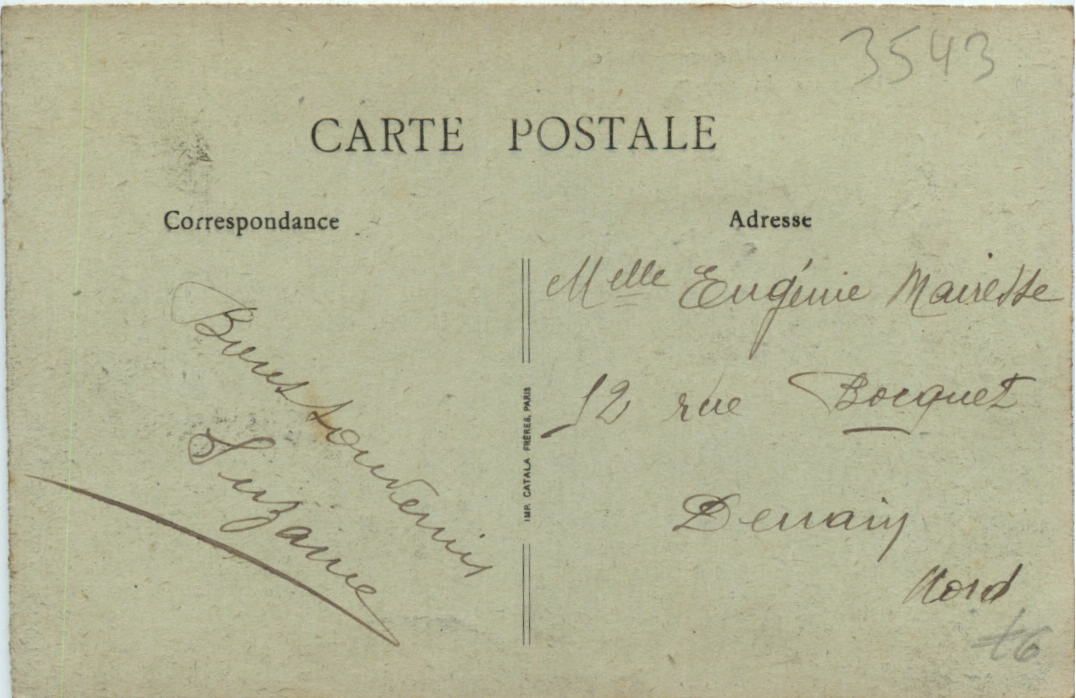 3543
CARTE POSTALE
Correspondance
Adresse
Bons souvenirs
Suzanne
IMP. CATALA FRÈRES, PARIS
Melle Eugénie Mairesse
12 rue Bocquet
Denain
Nord
t6